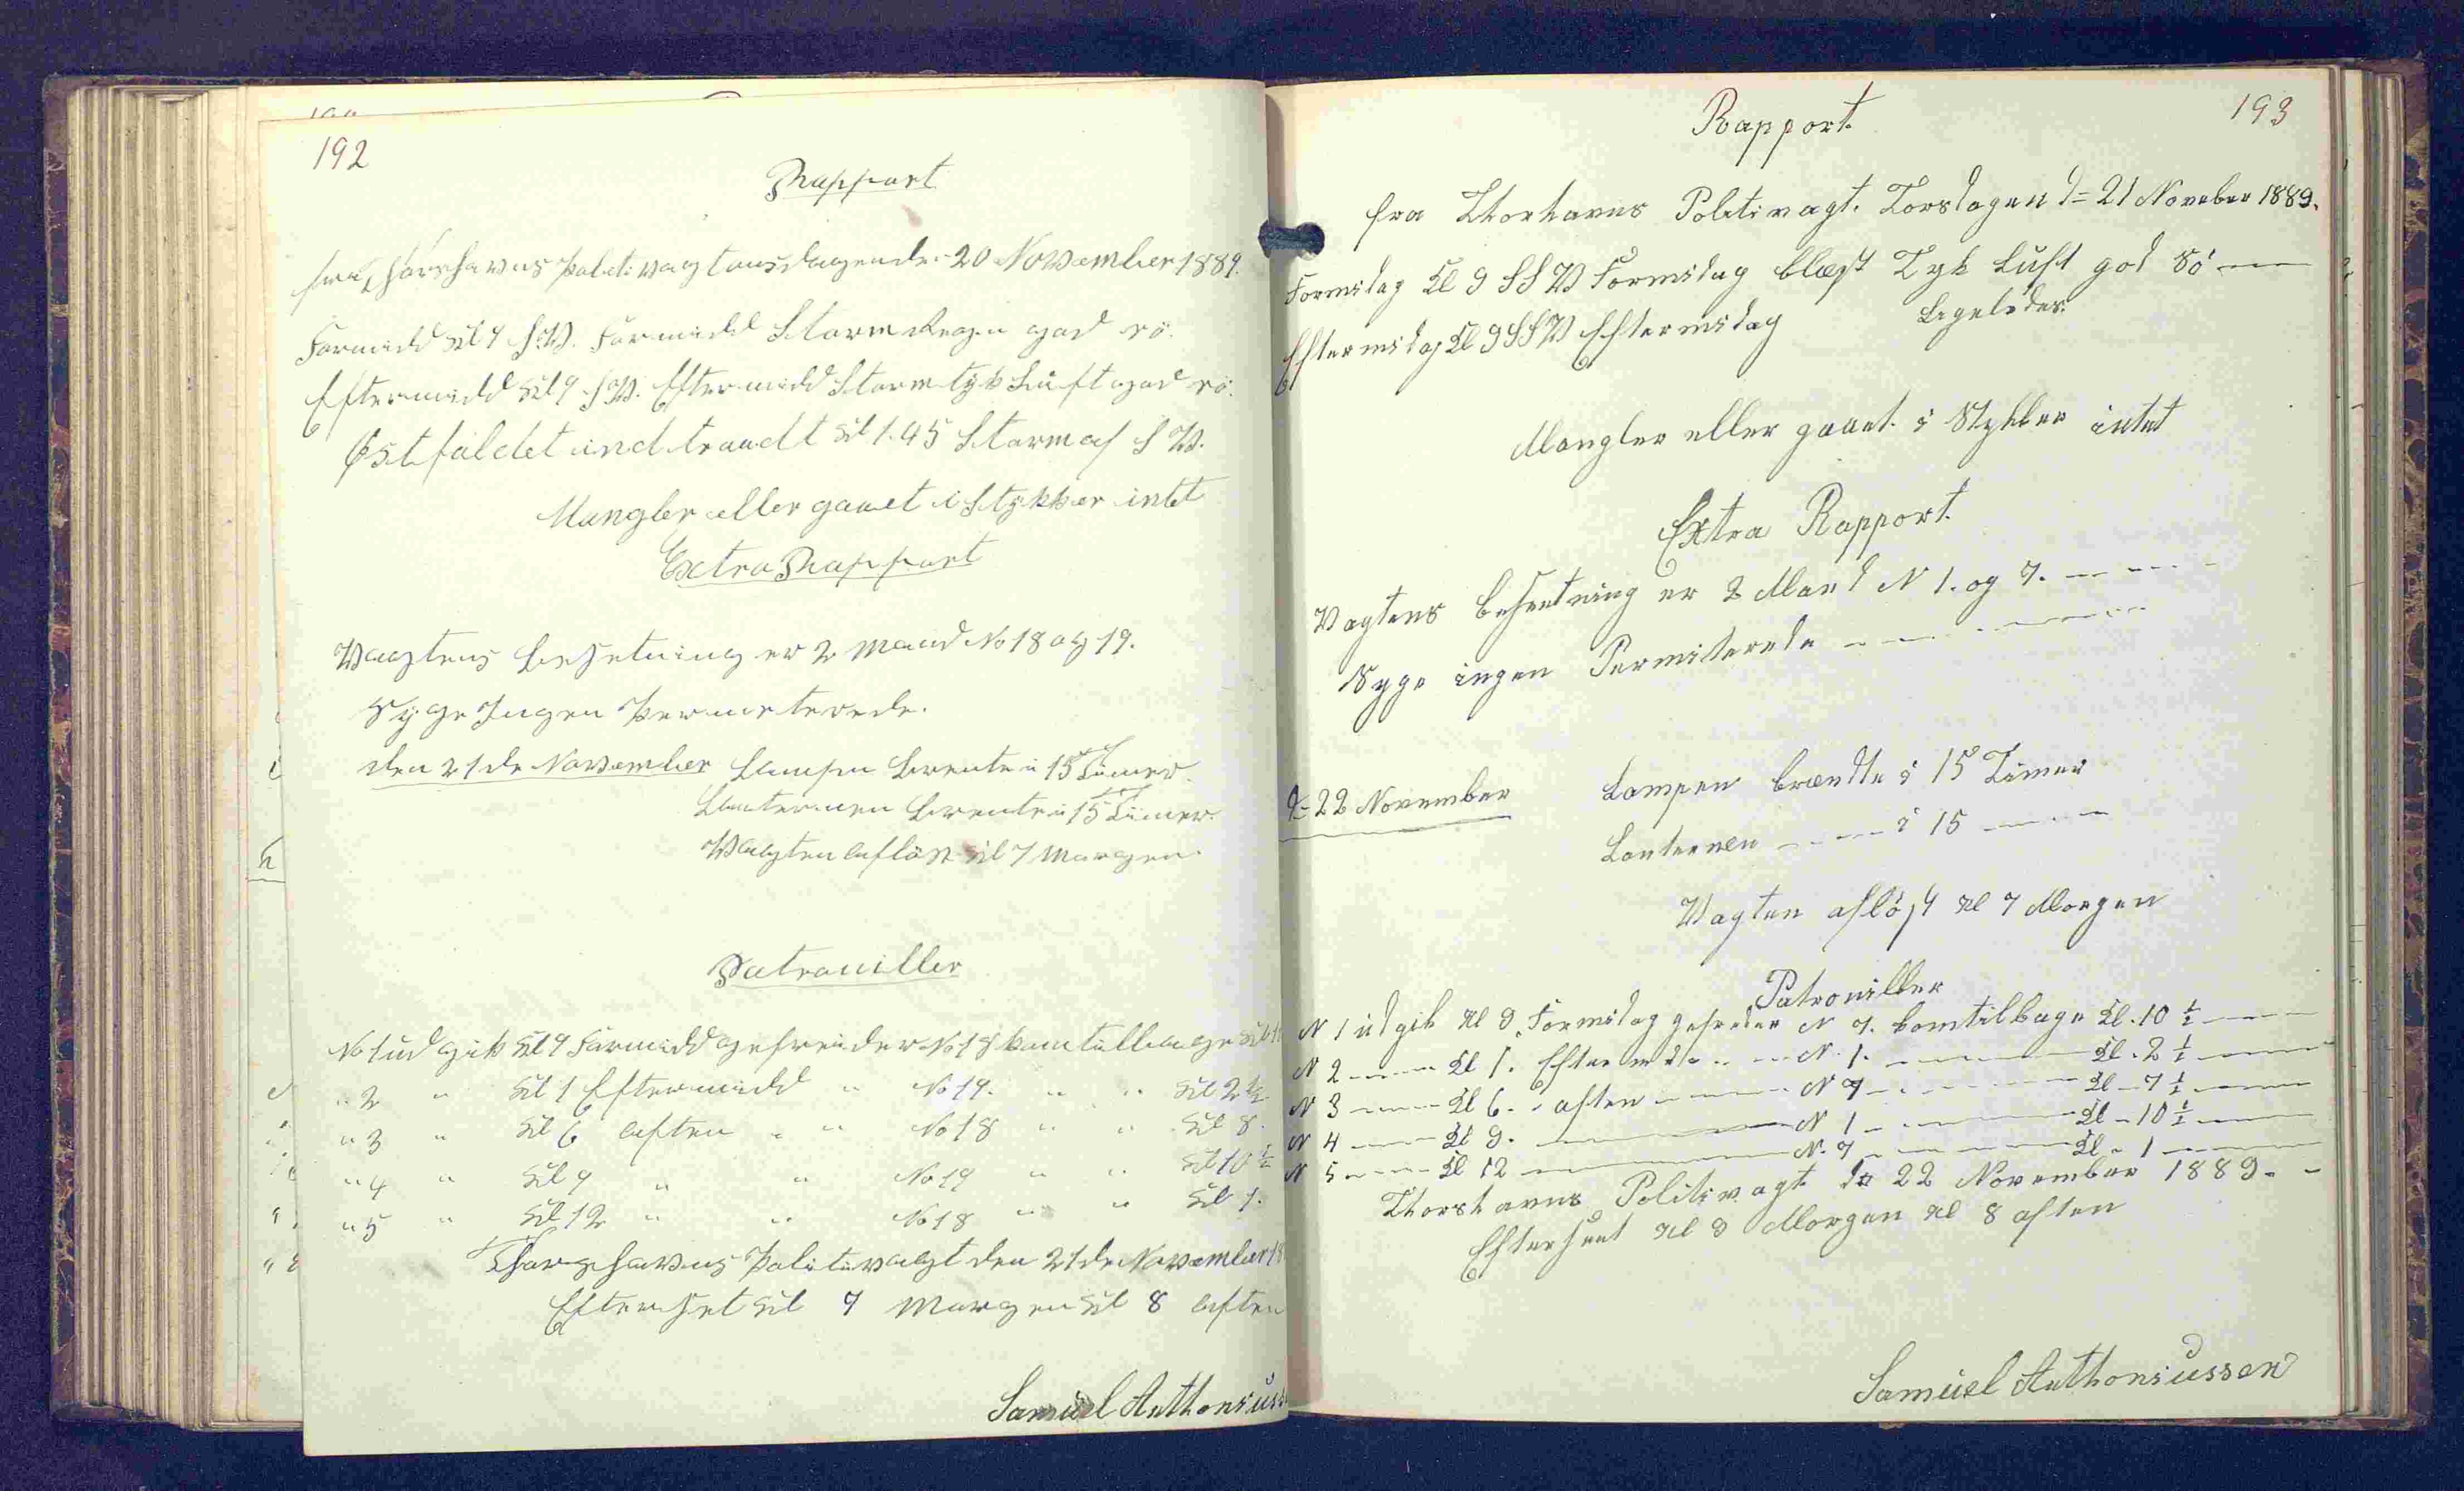 192
Rapport
fra Thorshavns Politivagt onsdagen de. 20 November 1889.
Formidd Kl 9 S.W. Formidd Storm Regn god sö.
Eftermidd Kl 9 S.W. Eftermidd Storm tyk Luft god sö.
Østfaldet indtraadt Kl 1.45 Storm af S W.
Mangler eller gaaet i Stykker intet
Extra Rapport
Vagtens besetning er 2 Mand No 18 og 19.
Syge Ingen Permeterede.
den 21 de November Lampen brente i 15 Timer.
Lanternen brente i 15 Timer.
Vagten aflöst Kl 7 Morgen.
Patrouiller
No 1 ud gik Kl 9 Formidd gefreider No 18 kom tillbage Kl 1
" 2 " Kl 1 Eftermidd " No 19. " " Kl 2½.
" 3 " Kl 6 aften " " No 18 " " Kl 8.
" 4 " Kl 9 " " No 19 " " Kl 10½
" 5 " Kl 12 " " No 18 " " Kl 1.
Thorshavns Politivagt den 21 de November 18
Efterset Kl 9 Morgen Kl 8 aften
Samuel Anthoniuss
193
Rapport.
fra Thorhavns Politivagt. Torsdagen d= 21 Noveber 1889.
Formidag Kl 9 SSW Formidag blæst Tyk Luft god Sö
Eftermidag Kl 9 SSW Eftermidag Ligeledes.
Mangler eller gaaet. i Stykker intet
Extra Rapport.
Vagtens besætning er 2 Mand N 1. og 7.
Syge ingen Permiterede
d= 22 November Lampen brændte i 15 Timer
Lanternen i 15
Vagten aflöst Kl 7 Morgen
Patrouiller
N 1 udgik Kl 9 Formidag gefreder N 7. komtilbage Kl. 10½
N 2 Kl 1. Eftermd N. 1. Kl. 2½
N 3 Kl 6. aften N 7 Kl 7½
N 4 Kl 9. N 1 Kl 10½
N 5 Kl 12 N. 7 Kl 1
Thorshavns Politivagt d= 22 November 1889.
Efterseet Kl 9 Morgen Kl 8 aften
Samuel Anthoniussen